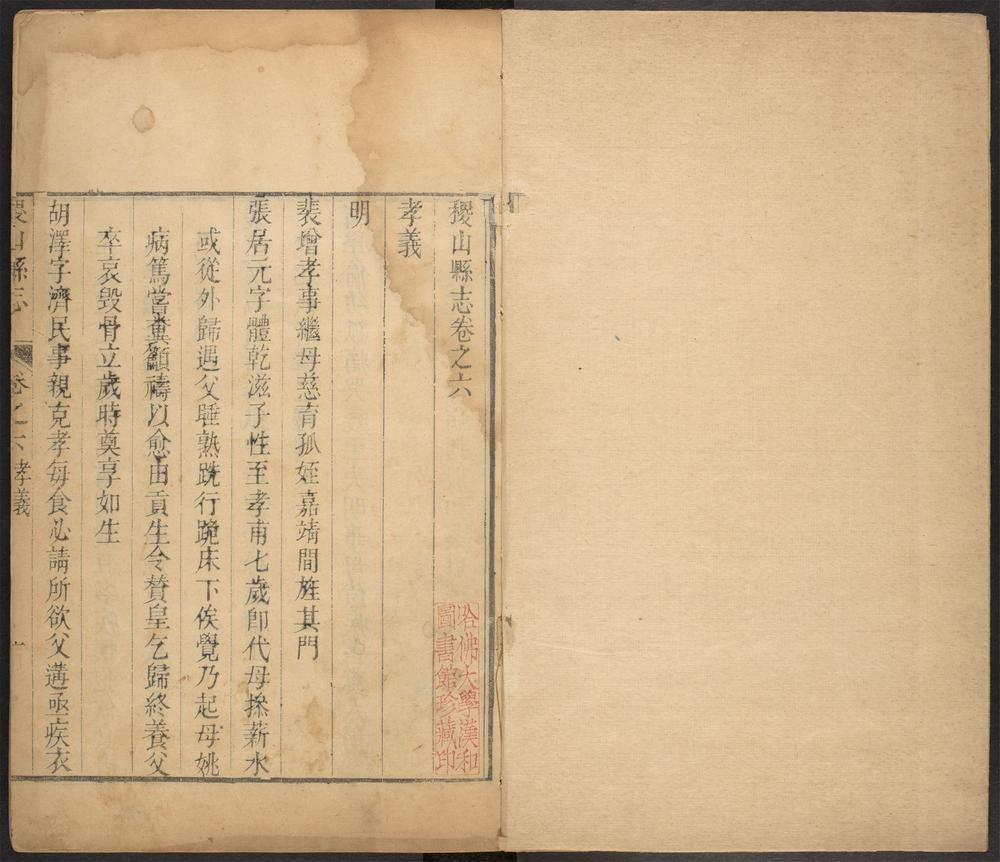 稷山縣志卷之六
孝義
明
裴增孝事繼母慈育孤姪嘉靖間旌其門
張居元字體乾滋子性至孝甫七歲卽代母操薪水
或從外歸遇父睡熟跣行跪床下俟覺乃起母姚
病篤嘗糞籲禱以愈由貢生令賛皇乞歸終養父
卒哀毀骨立歲時奠享如生
胡澤字濟民事親克孝每食必請所欲父遘亟疾衣
稷山縣志
卷之六 孝義
一
哈佛大學漢和
圖書館珍藏印